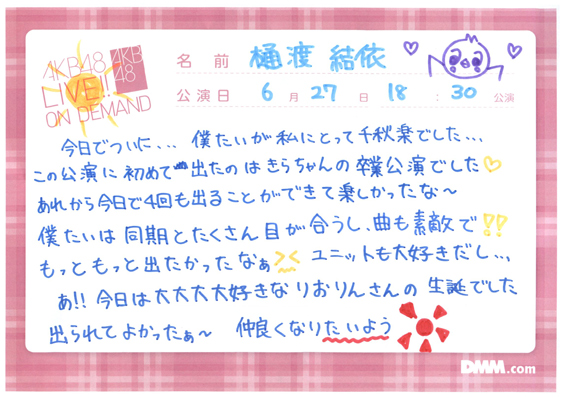 AKB48
LIVE!!
ON DEMAND
AKB
48
名 前 樋渡 結依
公演日 6月27日 18:30公演
今日でついに... 僕たいが私にとって千秋楽でした...
この公演に初めて出たのはきらちゃんの卒業公演でした♡
あれから今日で4回も出ることができて楽しかったな〜
僕たいは同期とたくさん目が合うし、曲も素敵で!!
もっともっと出たかったなぁ>< ユニットも大好きだし...
あ!! 今日は大大大大好きなりおりんさんの生誕でした
出られてよかったぁ〜 仲良くなりたいよう
DMM.com